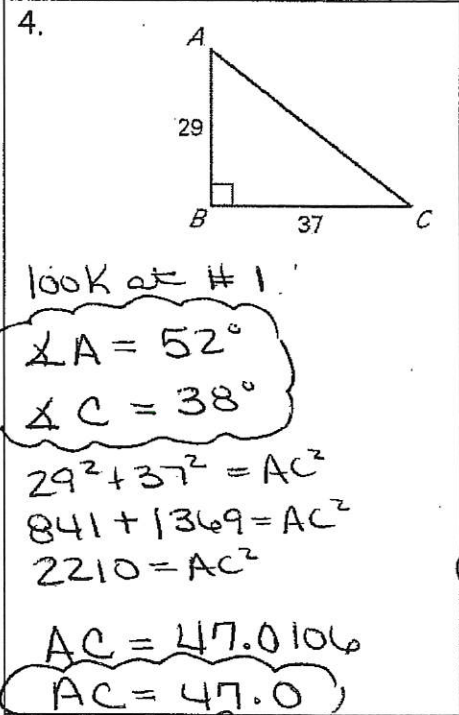 4.
A
29
B
37
C
look at # 1.
∡A = 52°
∡C = 38°
29² + 37² = AC²
841 + 1369 = AC²
2210 = AC²
AC = 47.0106
AC = 47.0